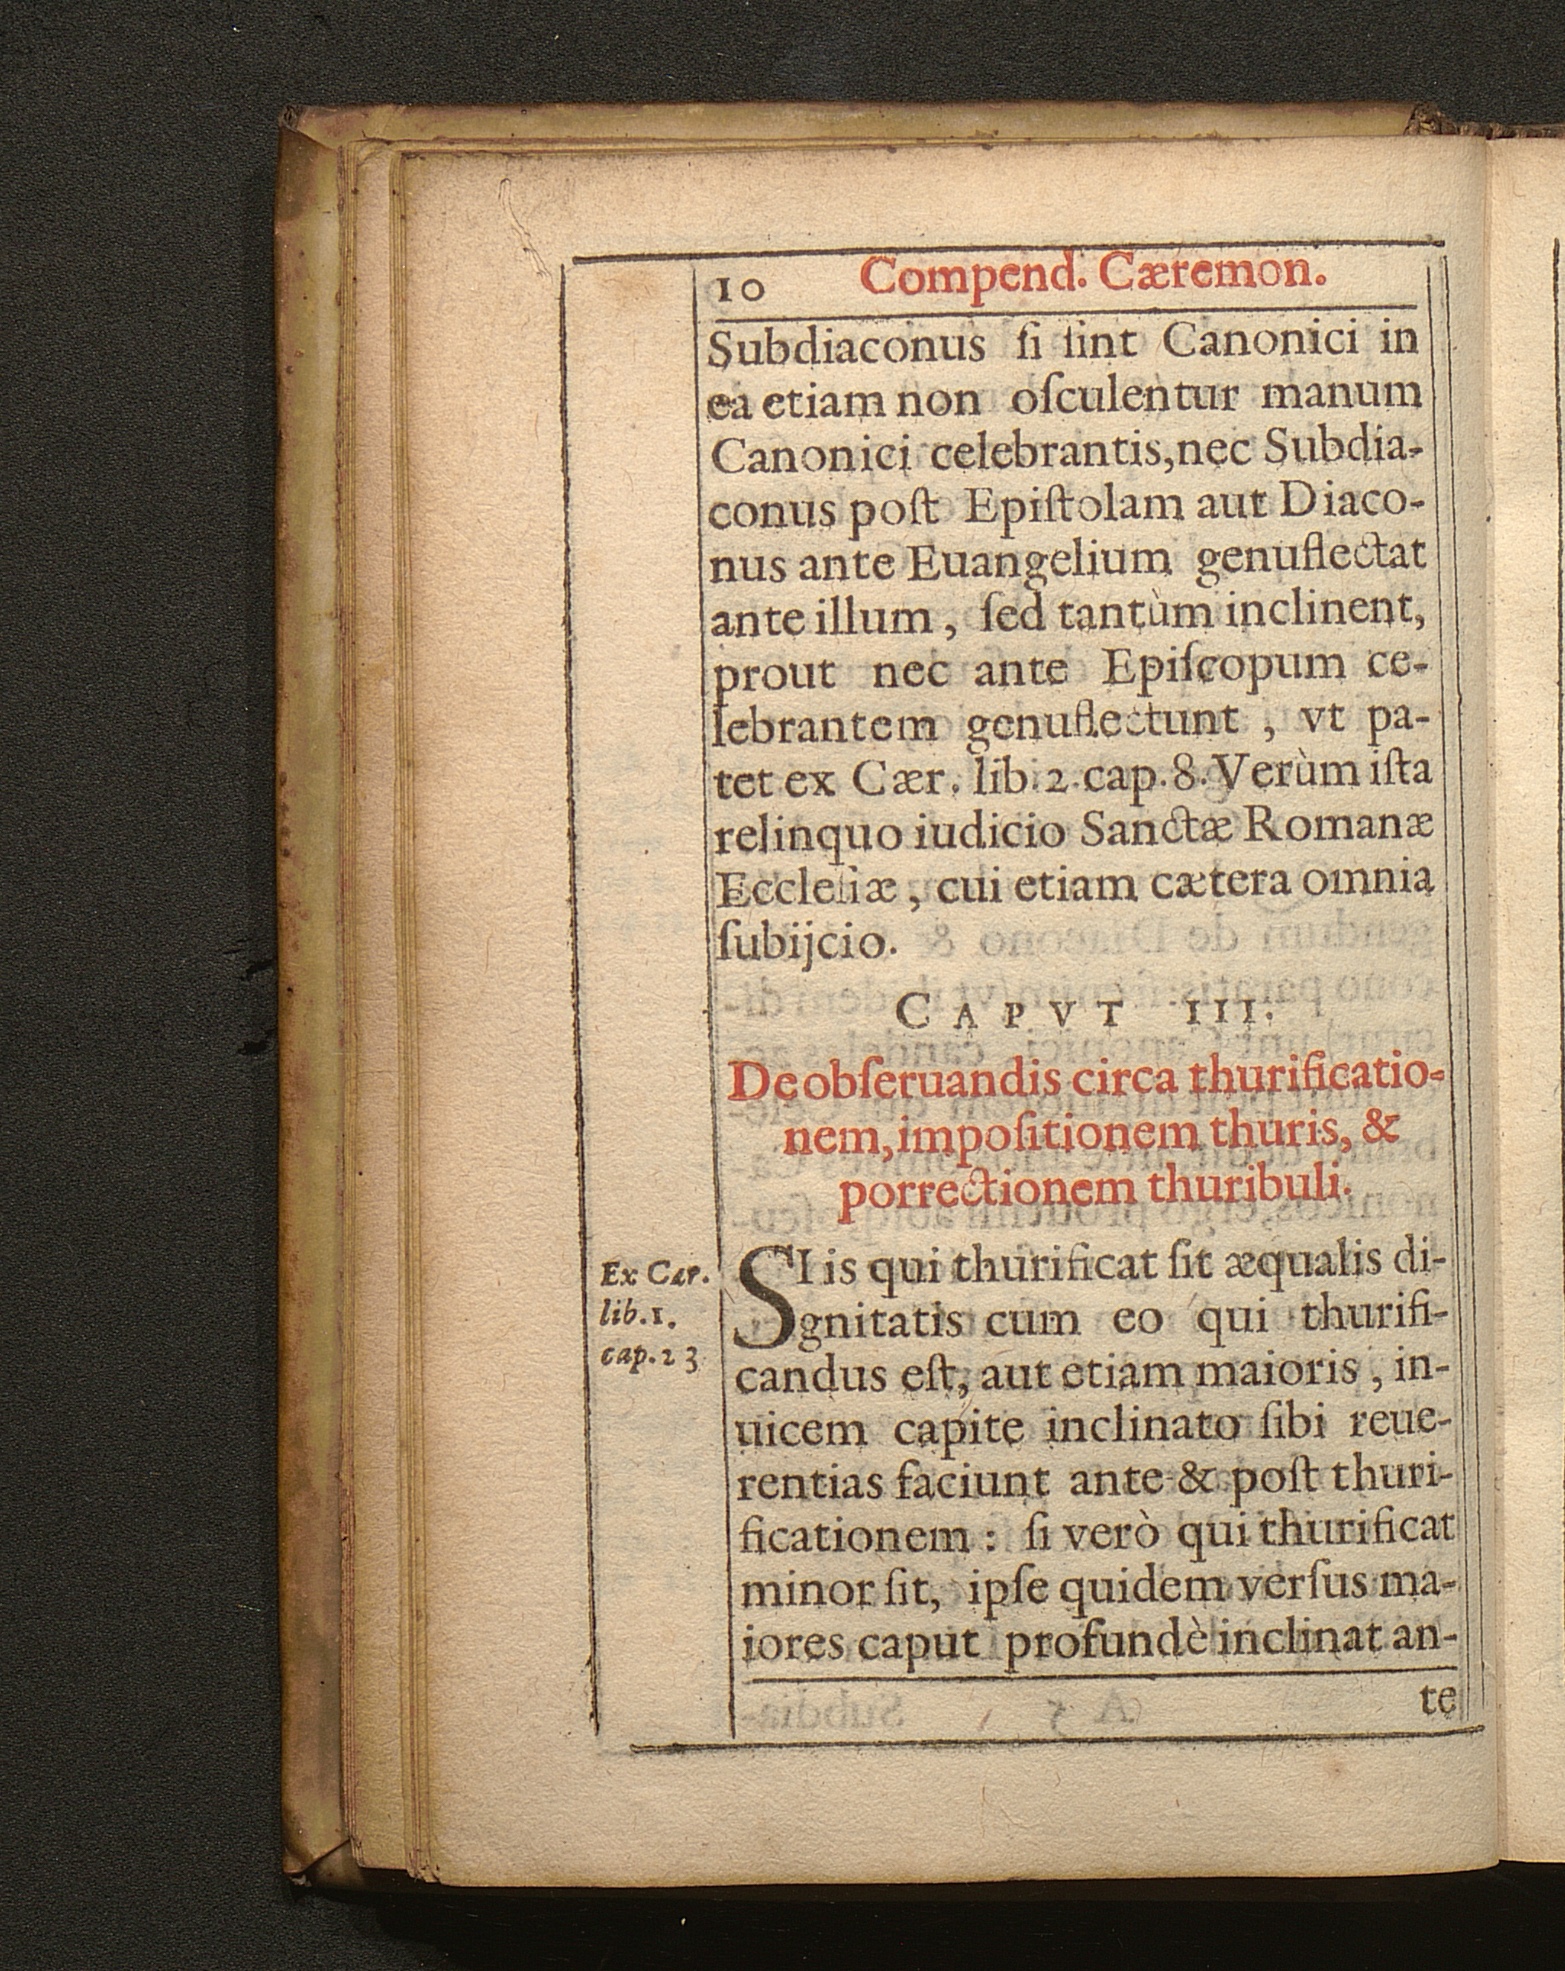 10 Compend. Cæremon.
Subdiaconus ſi ſint Canonici in
ea etiam non oſculentur manum
Canonici celebrantis,nec Subdia-
conus poſt Epiſtolam aut Diaco-
nus ante Euangelium genuflectat
ante illum, ſed tantùm inclinent,
prout nec ante Epiſcopum ce-
lebrantem genuflectunt, vt pa-
tet ex Cær. lib.2.cap.8.Verùm iſta
relinquo iudicio Sanctæ Romanæ
Eccleſiæ, cui etiam cætera omnia
ſubijcio.
CAPVT III.
De obſeruandis circa thurificatio-
nem,impoſitionem thuris, &
porrectionem thuribuli.
Ex Cær.
lib.1.
cap.23
SI is qui thurificat ſit æqualis di-
gnitatis cum eo qui thurifi-
candus eſt, aut etiam maioris, in-
uicem capite inclinato ſibi reue-
rentias faciunt ante & poſt thuri-
ficationem: ſi verò qui thurificat
minor ſit, ipſe quidem verſus ma-
iores caput profundè inclinat an-
te